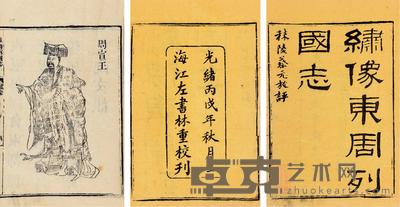 繡像東周列
國志
秣陵蔡元放評
光緒丙戌年秋月
海江左書林重校刊
周宣王
卓克艺术网
zhuokearts.com